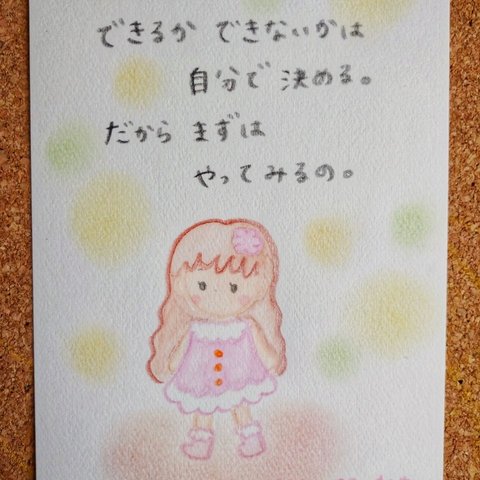 できるか できないかは
自分で 決める。
だから まずは
やってみるの。